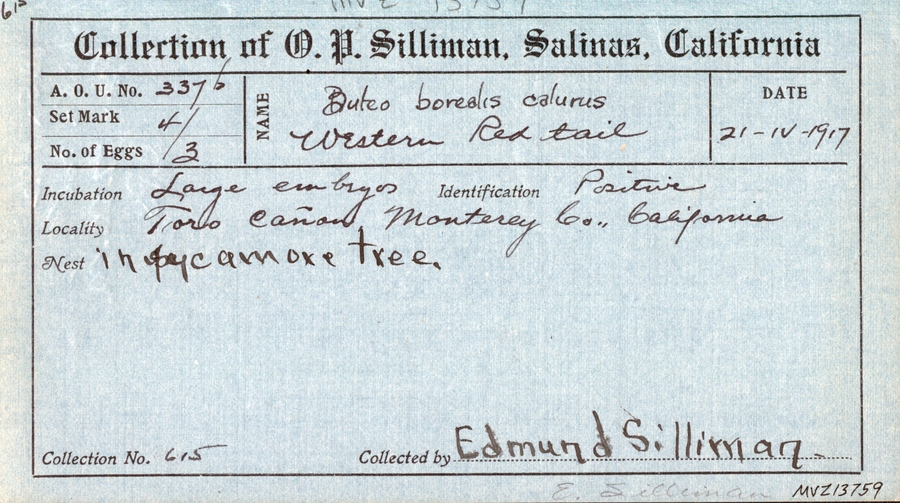 615
MVZ 13759
Collection of O. P. Silliman, Salinas, California
A. O. U. No. 337b
Set Mark 4/3
No. of Eggs
NAME
Buteo borealis calurus
Western Red tail
DATE
21-IV-1917
Incubation Large embryos Identification Positive
Locality Toro Cañon, Monterey Co., California
Nest in sycamore tree.
Collection No. 615 Collected by Edmund Silliman.
E. Silliman
MVZ13759